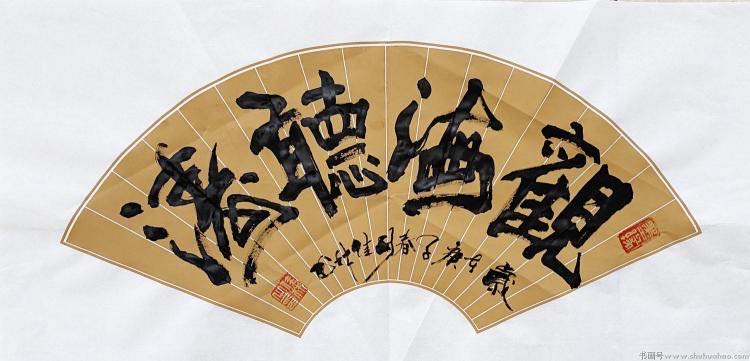 觀海聽濤
歲在庚子春月佳許书
书画号www.shuhuahao.com